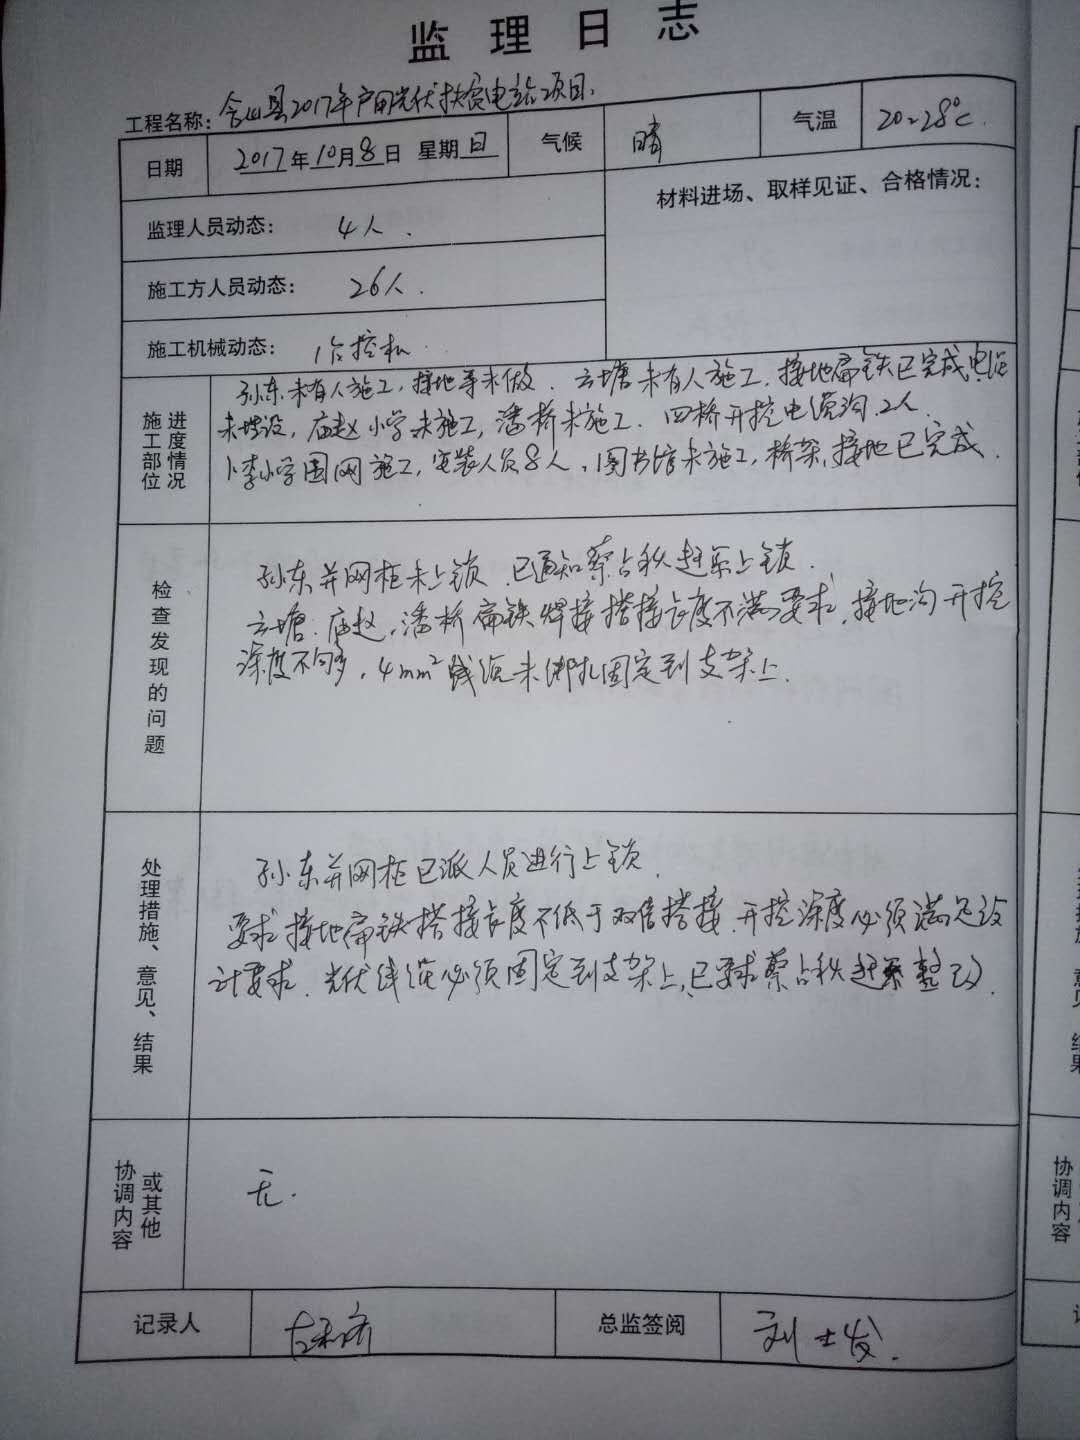 监理日志
工程名称：含山县2017年户用光伏扶贫电站项目.
日期 2017年10月8日 星期日 气候 晴 气温 20-28℃.
监理人员动态： 4人.
材料进场、取样见证、合格情况：
施工方人员动态： 26人.
施工机械动态： 1台挖机.
施工部位进度情况
孙东未有人施工，接地等未做. 云塘未有人施工. 接地扁铁已完成电缆
未埋设，庙赵小学未施工，潘桥未施工. 四桥开挖电缆沟.2人.
小李小学围网施工，安装人员8人，图书馆未施工，桥架，接地已完成.
检查发现的问题
孙东并网柜未上锁 已通知蔡占秋赶紧上锁.
云塘.庙赵.潘桥扁铁焊接搭接长度不满要求，接地沟开挖
深度不够，4mm²线缆未绑扎固定到支架上.
处理措施、意见、结果
孙东并网柜已派人员进行上锁.
要求接地扁铁搭接长度不低于双倍搭接.开挖深度必须满足设
计要求.光伏线缆必须固定到支架上，已要求蔡占秋赶紧整改.
协调内容或其他
无.
记录人 总监签阅 刘士发.
协调内容